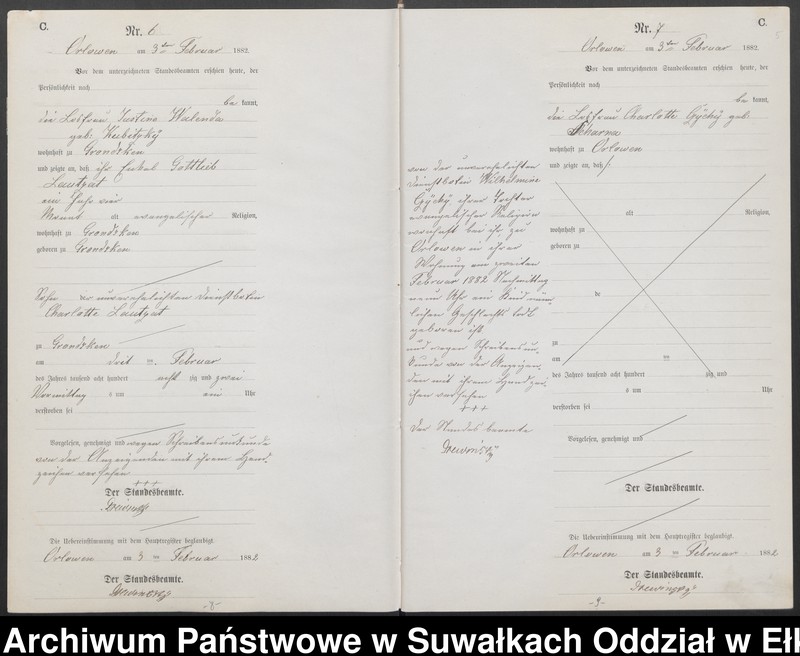 C.
Nr. 6
Orlowen am 3ten Februar 1882.
Vor dem unterzeichneten Standesbeamten erschien heute, der
Persönlichkeit nach
be kannt,
die Losfrau Justine Walenda
geb. Kubitzky
wohnhaft zu Grondzken
und zeigte an, daß ihr Enkel Gottlieb
ein Jahr vier
Monat alt evangelischer Religion,
wohnhaft zu Grondzken
geboren zu Grondzken
Sohn der unverehelichten Dienstbotin
Charlotte
zu Grondzken
am Februar
des Jahres tausend acht hundert acht zig und zwei
Vormittag s um ein Uhr
verstorben sei
Vorgelesen, genehmigt und wegen Schreibensunkunde
von der Anzeigenden mit ihrem Hand-
zeichen versehen
+++
Der Standesbeamte.
Die Uebereinstimmung mit dem Hauptregister beglaubigt.
Orlowen am 3 ten Februar 1882
Der Standesbeamte.
-8-
C.
Nr. 7
5
Orlowen am 3ten Februar 1882.
Vor dem unterzeichneten Standesbeamten erschien heute, der
Persönlichkeit nach
be kannt,
die Losfrau Charlotte geb.
wohnhaft zu Orlowen
und zeigte an, daß
von der unverehelichten
Dienstbotin Wilhelmine
ihrer Tochter
evangelischer Religion
wohnhaft bei ihr zu
Orlowen in ihrer
Wohnung am zweiten
Februar 1882 Nachmittag
neun Uhr ein Kind männ-
lichen Geschlechts todt
geboren ist
und wegen Schreibensun-
kunde von der Anzeigen-
den mit ihrem Handzei-
chen versehen
+++
Der Standesbeamte
alt Religion,
wohnhaft zu
geboren zu
de
zu
am ten
des Jahres tausend acht hundert zig und
s um Uhr
verstorben sei
Vorgelesen, genehmigt und
Der Standesbeamte.
Die Uebereinstimmung mit dem Hauptregister beglaubigt.
Orlowen am 3 ten Februar 1882
Der Standesbeamte.
-9-
Archiwum Państwowe w Suwałkach Oddział w Ełk